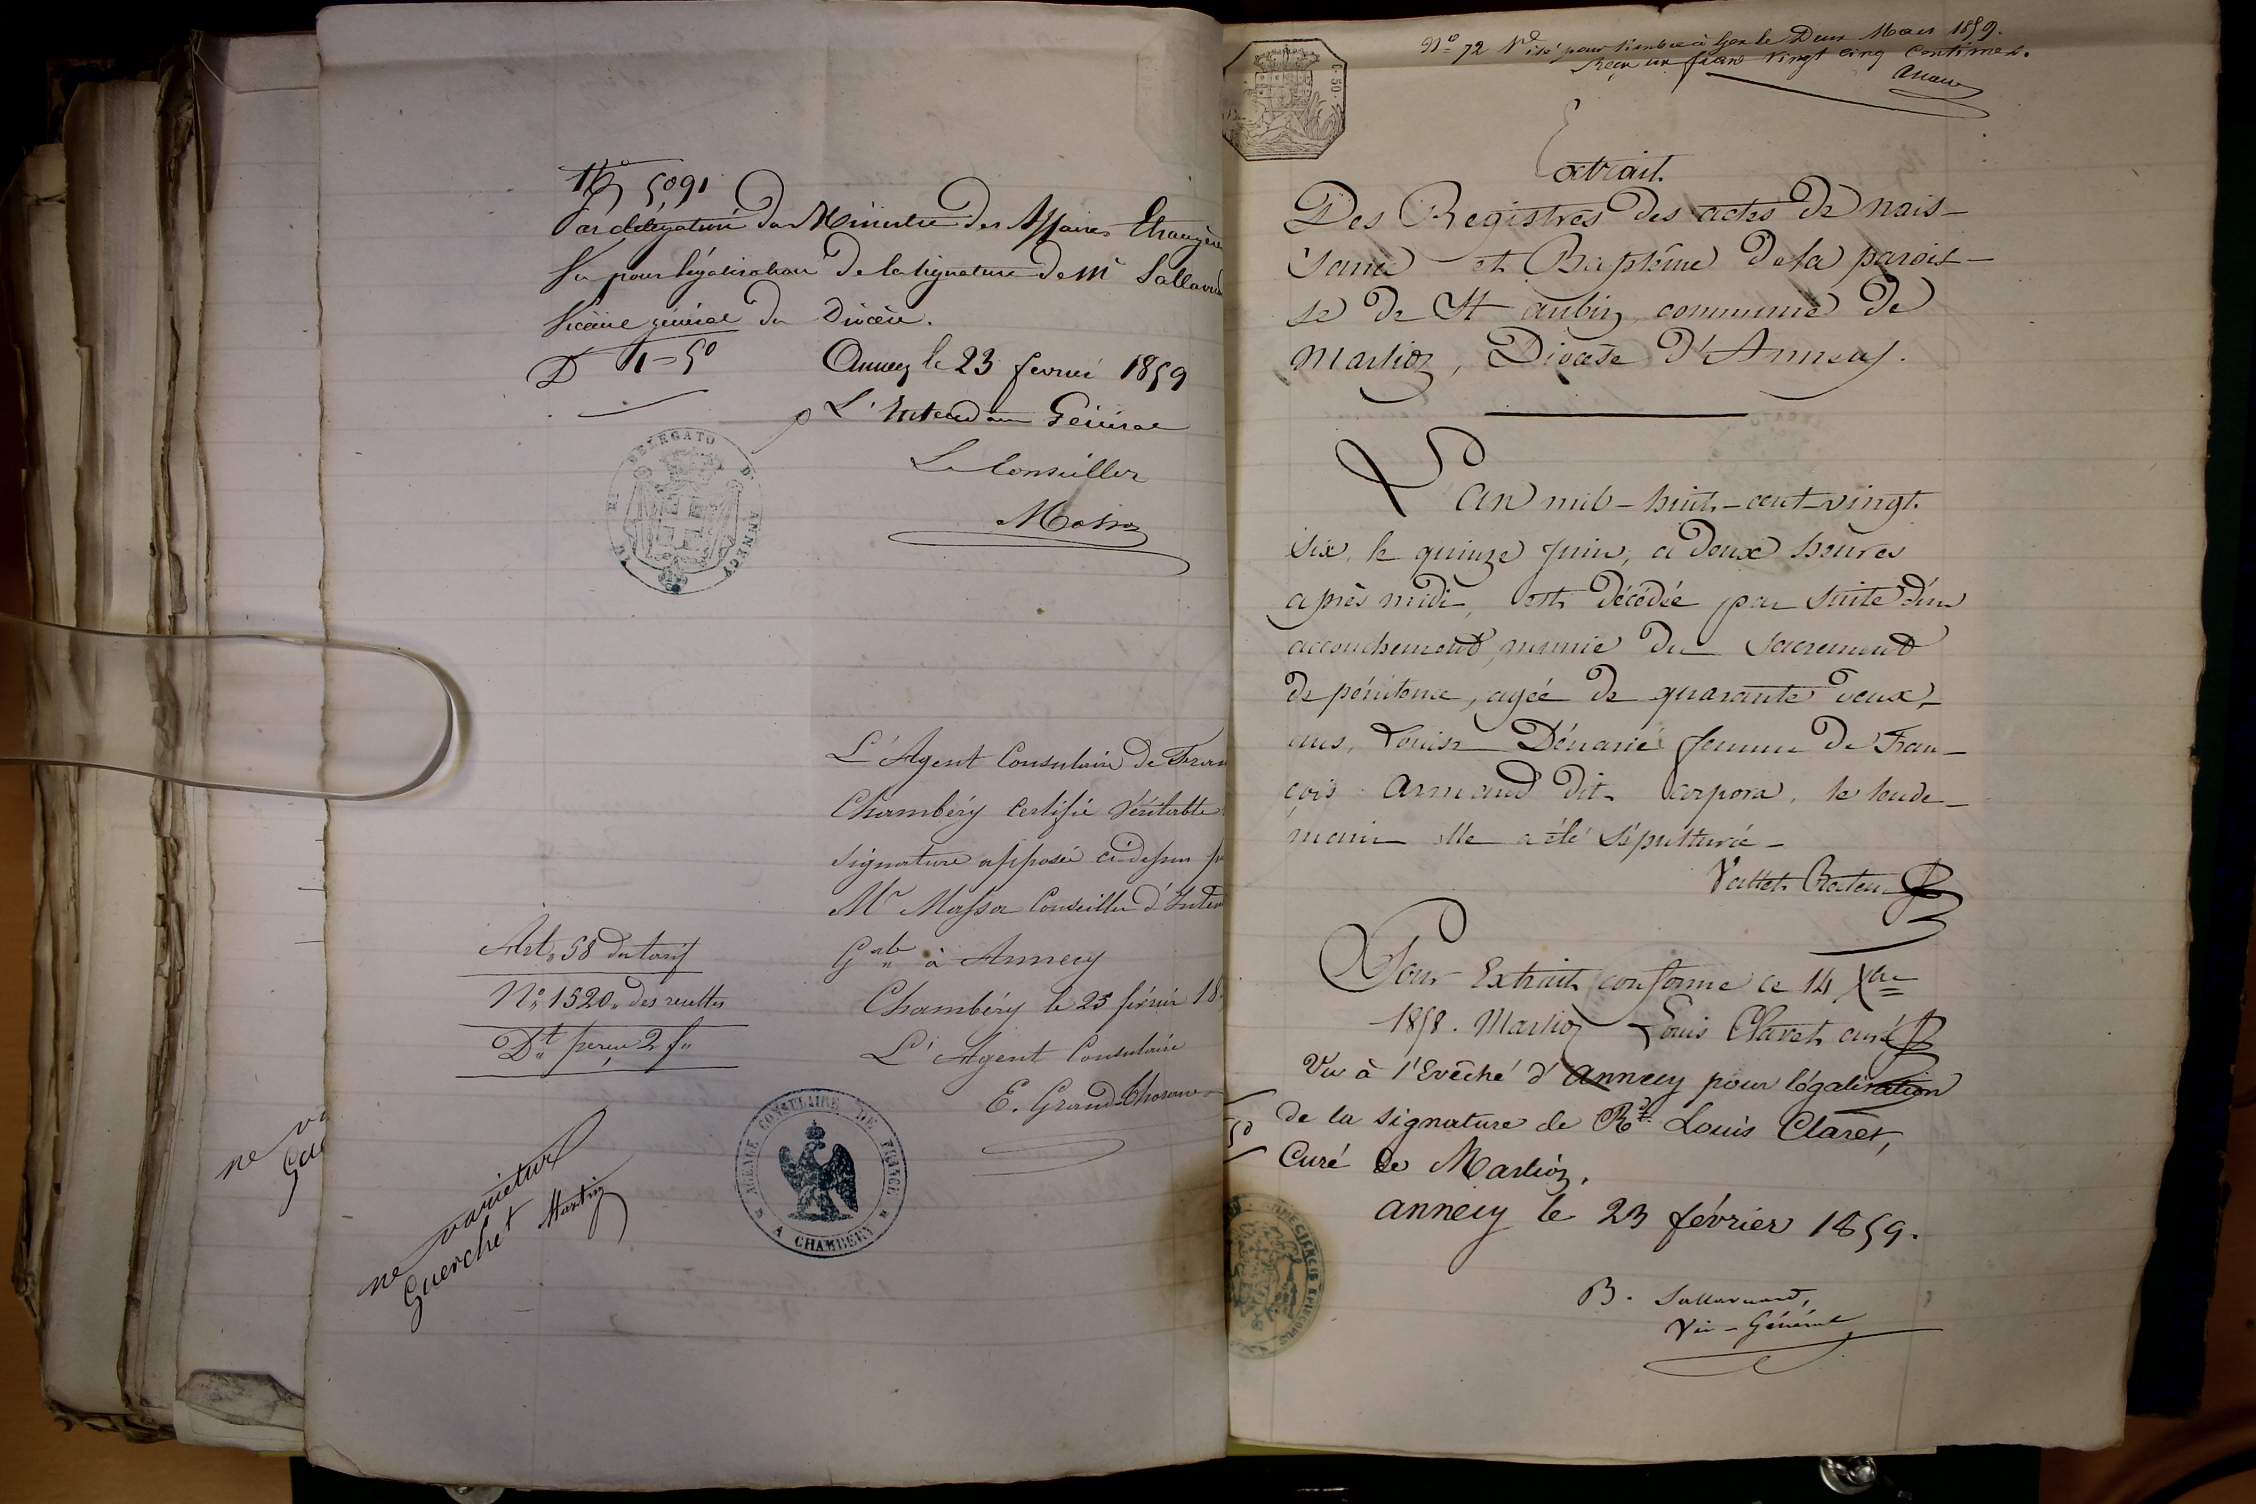 No 5091
Par délégation du Ministre des Affaires Etrangère
Vu pour légalisation de la signature de Mr Sallavua
Vicaire général du Diocèse.
D 1=50
Annecy le 23 fevrier 1859
L'Intendant Général
Le Conseiller
Massa
DELEGATO D' ANNECY
L'Agent Consulaire de Fran
Chambéry Certifie Véritable
signature apposée ci-dessus p
Mr Massa Conseiller d'Inten
Gale à Annecy
Chambéry le 25 février 18
L'Agent Consulaire
E. Grand Thorane
Art. 58 du tarif
No 1520 des recettes
Dt perçu 2 f
AGENCE CONSULAIRE DE FRANCE
A CHAMBÉRY
ne varietur
Guerchet Martin
ne va
Gue
No 72 Visé pour timbre à Gex le Deux Mars 1859.
Reçu un franc vingt cinq centimes.
C. 50
Extrait
Des Registres des actes de nais-
sance et Baptême de la parois-
se de St aubin, commune de
Marlioz, Diocèse d'Annecy.
L'an mil-huit-cent-vingt-
six, le quinze juin, a deux heures
après midi, est décédée par suite d'un
accouchement, munie du sacrement
de pénitence, agée de quarante deux
ans, Louise Dénarié femme de Fran-
çois Armand dit corpora, le lende-
main elle a été sépulturée -
Vallet Recteur
Pour Extrait conforme ce 14 Xbre
1858. Marlioz Louis Claret curé
Vu à l'Evêché d'Annecy pour légalisation
de la signature de Rd Louis Claret,
Curé de Marlioz.
50
annecy le 23 février 1859.
B. Sallavuard,
Vic-Général